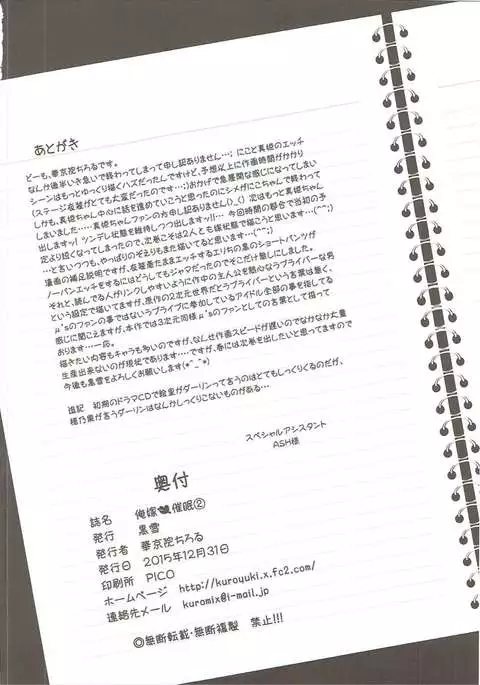 あとがき
どーも、華京院ちろるです。
なんか後半いき急いで終わってしまって申し訳ありません…; にこと真姫のエッチ
シーンはもっとゆっくり描くハズだったんですけど、予想以上に作画時間がかかり
(ステージ衣装がとても大変だったのです…;)おかげで急展開な感じになってしまい
しかも、真姫ちゃん中心に話を進めていこうと思ったのにシメがにこちゃんで終わって
しまいました……真姫ちゃんファンの方申し訳ありません(_ _) 次はもっと真姫ちゃん
出しますッ! ツンデレ状態を維持しつつ出しますッ!!… 今回時間の都合で当初の予
定より短くなってしまったので、次巻こそは2人とも嫁状態で描こうと思います…(^^;)
…と言いつつも、やっぱりのぞえりもまた描いてると思います…(^^;)
漫画の補足説明ですが、衣装着たままエッチするエリちの黒のショートパンツが
ノーパンエッチをするにはどうしてもジャマだったのでそこだけ無しにしました。
それと、読んでる人がリンクしやすいように作中の主人公を熱心なラブライバーな男
という設定で描いてますが、原作の2次元世界だとラブライバーという言葉は無く、
μ'sのファンの事ではないラブライブに参加しているアイドル全部の事を指してる
感じに聞こえますが、本作では3次元同様μ'sのファンとしての言葉として扱って
おります…一応。
描きたい内容もキャラも多いのですが、なんせ作画スピードが遅いのでなかなか大量
生産出来ないのが現状であります…ですが、春には次巻を出したいと思ってますので
今後も黒雪をよろしくお願いします(*^_^*)
追記 初期のドラマCDで絵里がダーリンって言うのはとてもしっくりくるのだが、
穂乃果が言うダーリンはなんかしっくりこないものがある…
スペシャルアシスタント
ASH様
奥付
誌名 俺嫁催眠②
発行 黒雪
発行者 華京院ちろる
発行日 2015年12月31日
印刷所 PICO
ホームページ http://kuroyuki.x.fc2.com/
連絡先メール kuromix@i-mail.jp
◎無断転載・無断複製 禁止!!!